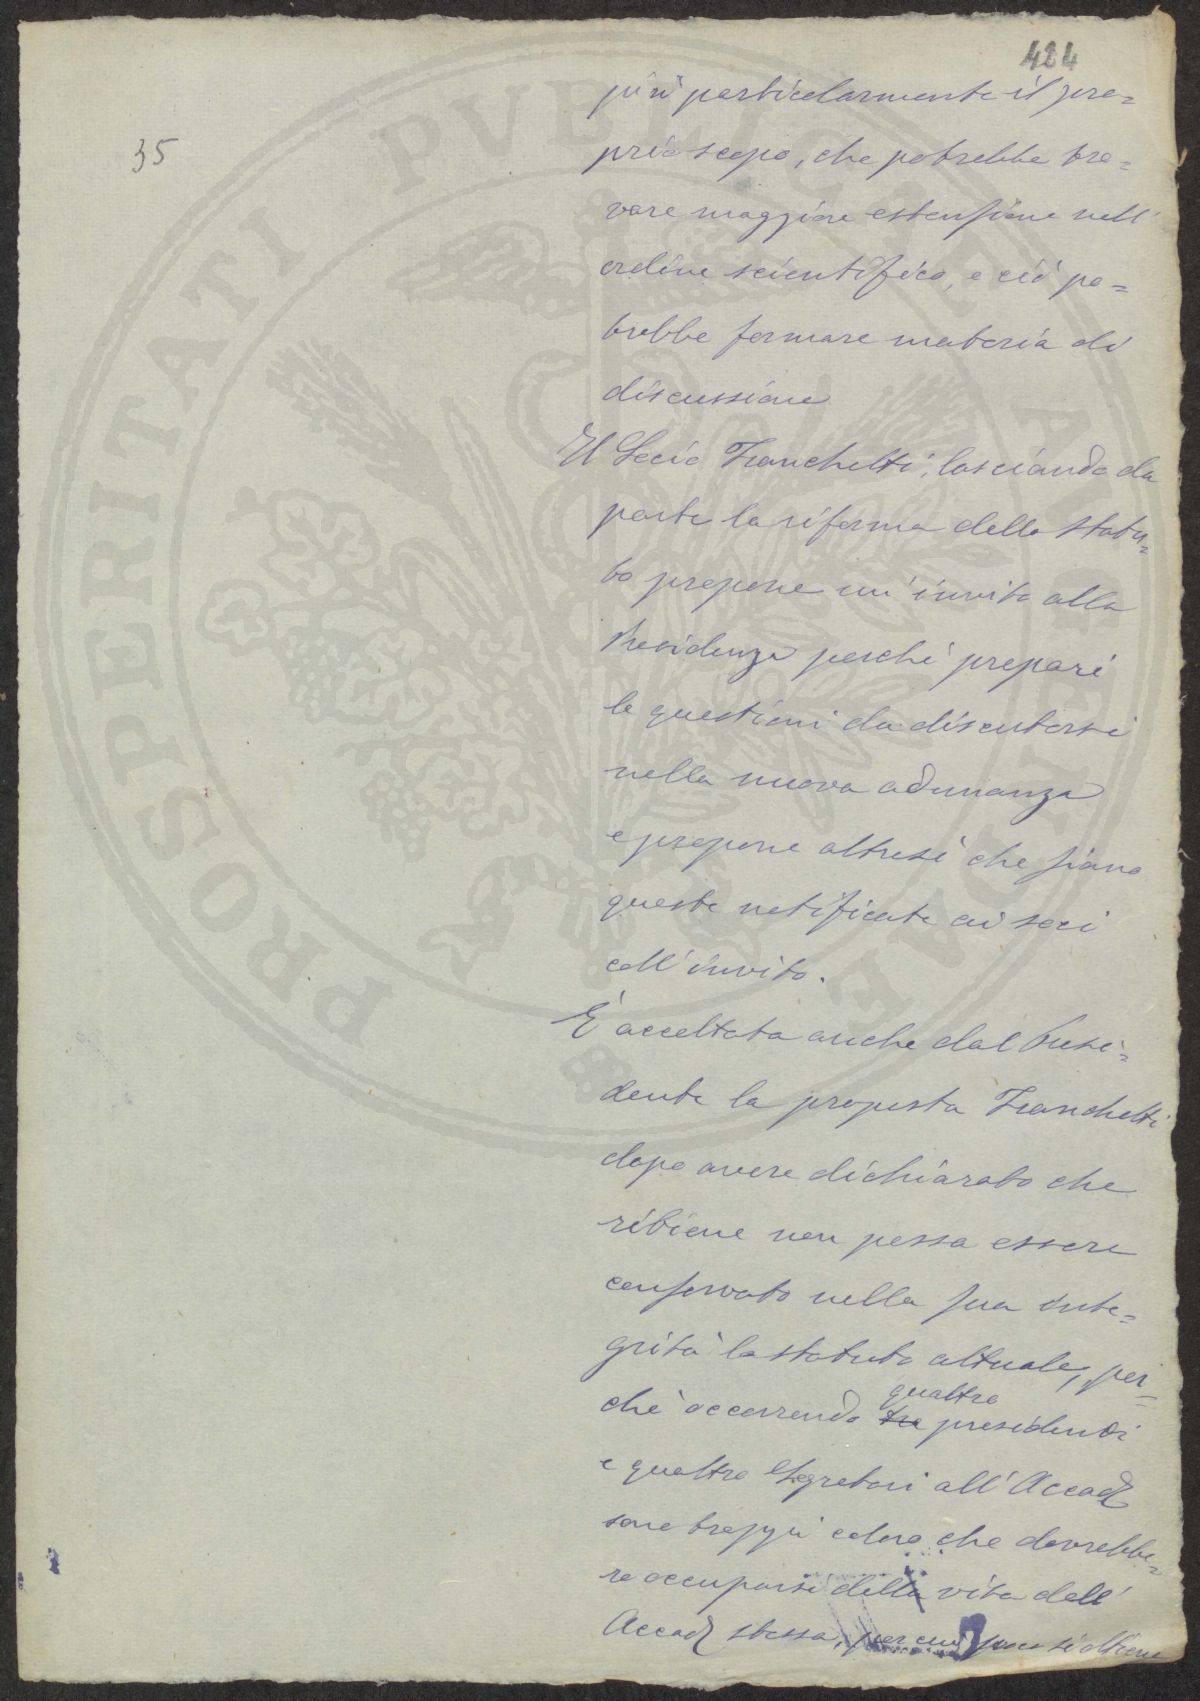 424
35
più particolarmente il pro=
prio scopo, che potrebbe tro=
vare maggiore estensione nell'
ordine scientifico, e ciò po=
trebbe formare materia di
discussione
Il Socio Franchetti, lasciando da
parte la riforma dello statu=
to propone un'invito alla
Presidenza perché prepari
le questioni da discutersi
nella nuova adunanza
e propone altresì che siano
queste notificate ai soci
coll'invito.
È accettata anche dal Presi=
dente la proposta Franchetti
dopo avere dichiarato che
ritiene non possa essere
conservato nella sua inte=
grità lo statuto attuale, per=
quattro
chè occorrendo tre presidenti
e quattro Segretari all'Accad
sono troppi coloro che dovrebbe=
ro occuparsi della vita dell'
Accad stessa, per cui poco si ottiene
PROSPERITATI PVBLICAE AVGENDAE